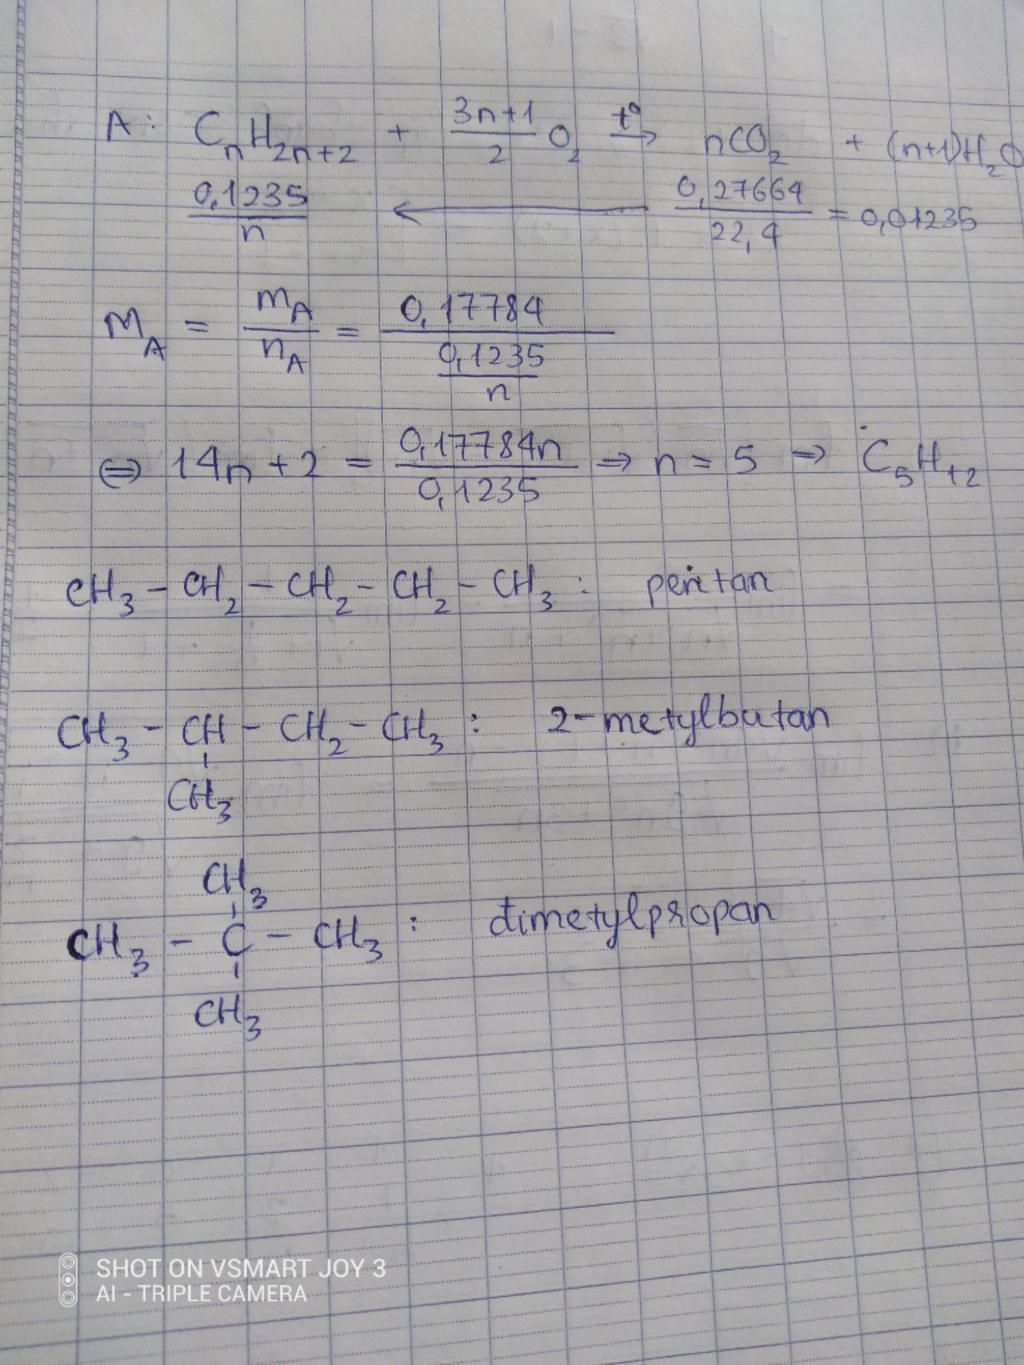 A: CₙH₂ₙ₊₂ + 3n+1/2 O₂ t° → nCO₂ + (n+1)H₂O
0,1235/n ← 0,27664/22,4 = 0,01235
M_A = m_A/n_A = 0,17784/(0,1235/n)
⇔ 14n + 2 = 0,17784n/0,1235 ⇒ n = 5 ⇒ C₅H₁₂
CH₃ – CH₂ – CH₂ – CH₂ – CH₃ : pentan
CH₃ – CH – CH₂ – CH₃ : 2-metylbutan
CH₃
CH₃
CH₃ – C – CH₃ : đimetylpropan
CH₃
SHOT ON VSMART JOY 3
AI - TRIPLE CAMERA